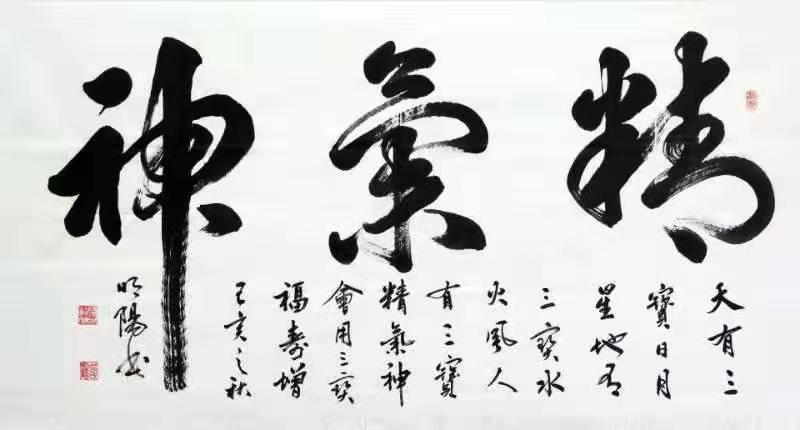 精氣神
天有三
寶日月
星地有
三寶水
火風人
有三寶
精氣神
會用三寶
福壽增
己亥之秋
明陽書